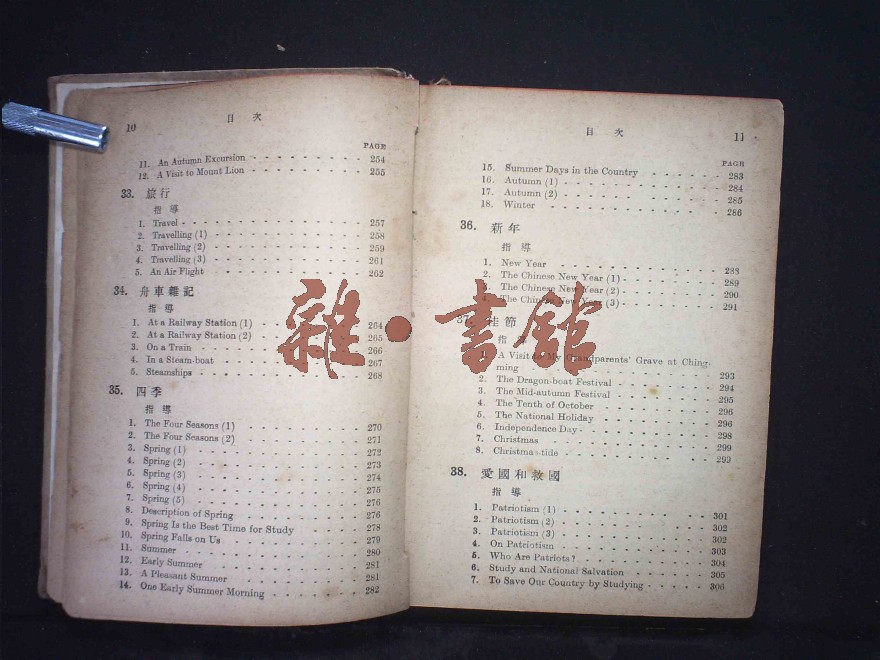 10 目 次
PAGE
11. An Autumn Excursion - - - - - - - - 254
12. A Visit to Mount Lion - - - - - - - - 255
33. 旅行
指 導
1. Travel - - - - - - - - - - - 257
2. Travelling (1) - - - - - - - - - 258
3. Travelling (2) - - - - - - - - - 259
4. Travelling (3) - - - - - - - - - 261
5. An Air Flight - - - - - - - - - 262
34. 舟車雜記
指 導
1. At a Railway Station (1) - - - - - - 264
2. At a Railway Station (2) - - - - - - 265
3. On a Train - - - - - - - - - 266
4. In a Steam-boat - - - - - - - - 267
5. Steamships - - - - - - - - - 268
35. 四季
指 導
1. The Four Seasons (1) - - - - - - - 270
2. The Four Seasons (2) - - - - - - - 271
3. Spring (1) - - - - - - - - - 272
4. Spring (2) - - - - - - - - - 273
5. Spring (3) - - - - - - - - - 274
6. Spring (4) - - - - - - - - - 275
7. Spring (5) - - - - - - - - - 276
8. Description of Spring - - - - - - - 276
9. Spring Is the Best Time for Study - - - - 278
10. Spring Falls on Us - - - - - - - 279
11. Summer - - - - - - - - - 280
12. Early Summer - - - - - - - - 281
13. A Pleasant Summer - - - - - - - 281
14. One Early Summer Morning - - - - - - 282
目 次 11
PAGE
15. Summer Days in the Country - - - - - - 283
16. Autumn (1) - - - - - - - - - 284
17. Autumn (2) - - - - - - - - - 285
18. Winter - - - - - - - - - - 286
36. 新年
指 導
1. New Year - - - - - - - - - 288
2. The Chinese New Year (1) - - - - - - 289
3. The Chinese New Year (2) - - - - - - 290
4. The Chinese New Year (3) - - - - - - 291
37. 佳節
指 導
1. A Visit to My Grandparents' Grave at Ching-
ming - - - - - - - - - - 293
2. The Dragon-boat Festival - - - - - - 294
3. The Mid-autumn Festival - - - - - - 295
4. The Tenth of October - - - - - - - 296
5. The National Holiday - - - - - - - 296
6. Independence Day - - - - - - - - 298
7. Christmas - - - - - - - - - 299
8. Christmas-tide - - - - - - - - 299
38. 愛國和救國
指 導
1. Patriotism (1) - - - - - - - - 301
2. Patriotism (2) - - - - - - - - 302
3. Patriotism (3) - - - - - - - - 302
4. On Patriotism - - - - - - - - 303
5. Who Are Patriots? - - - - - - - 304
6. Study and National Salvation - - - - - 305
7. To Save Our Country by Studying - - - - - 306
雜·書館